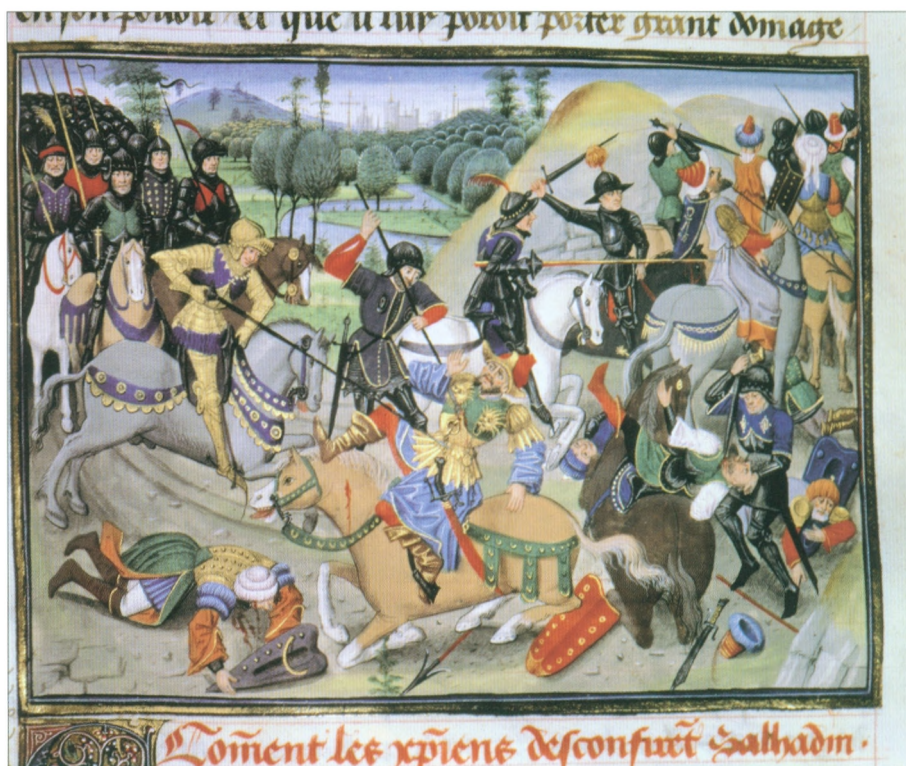 en son povoir et que il luy povoit porter grant domage
Coment les xpiens desconfiret Salhadin.